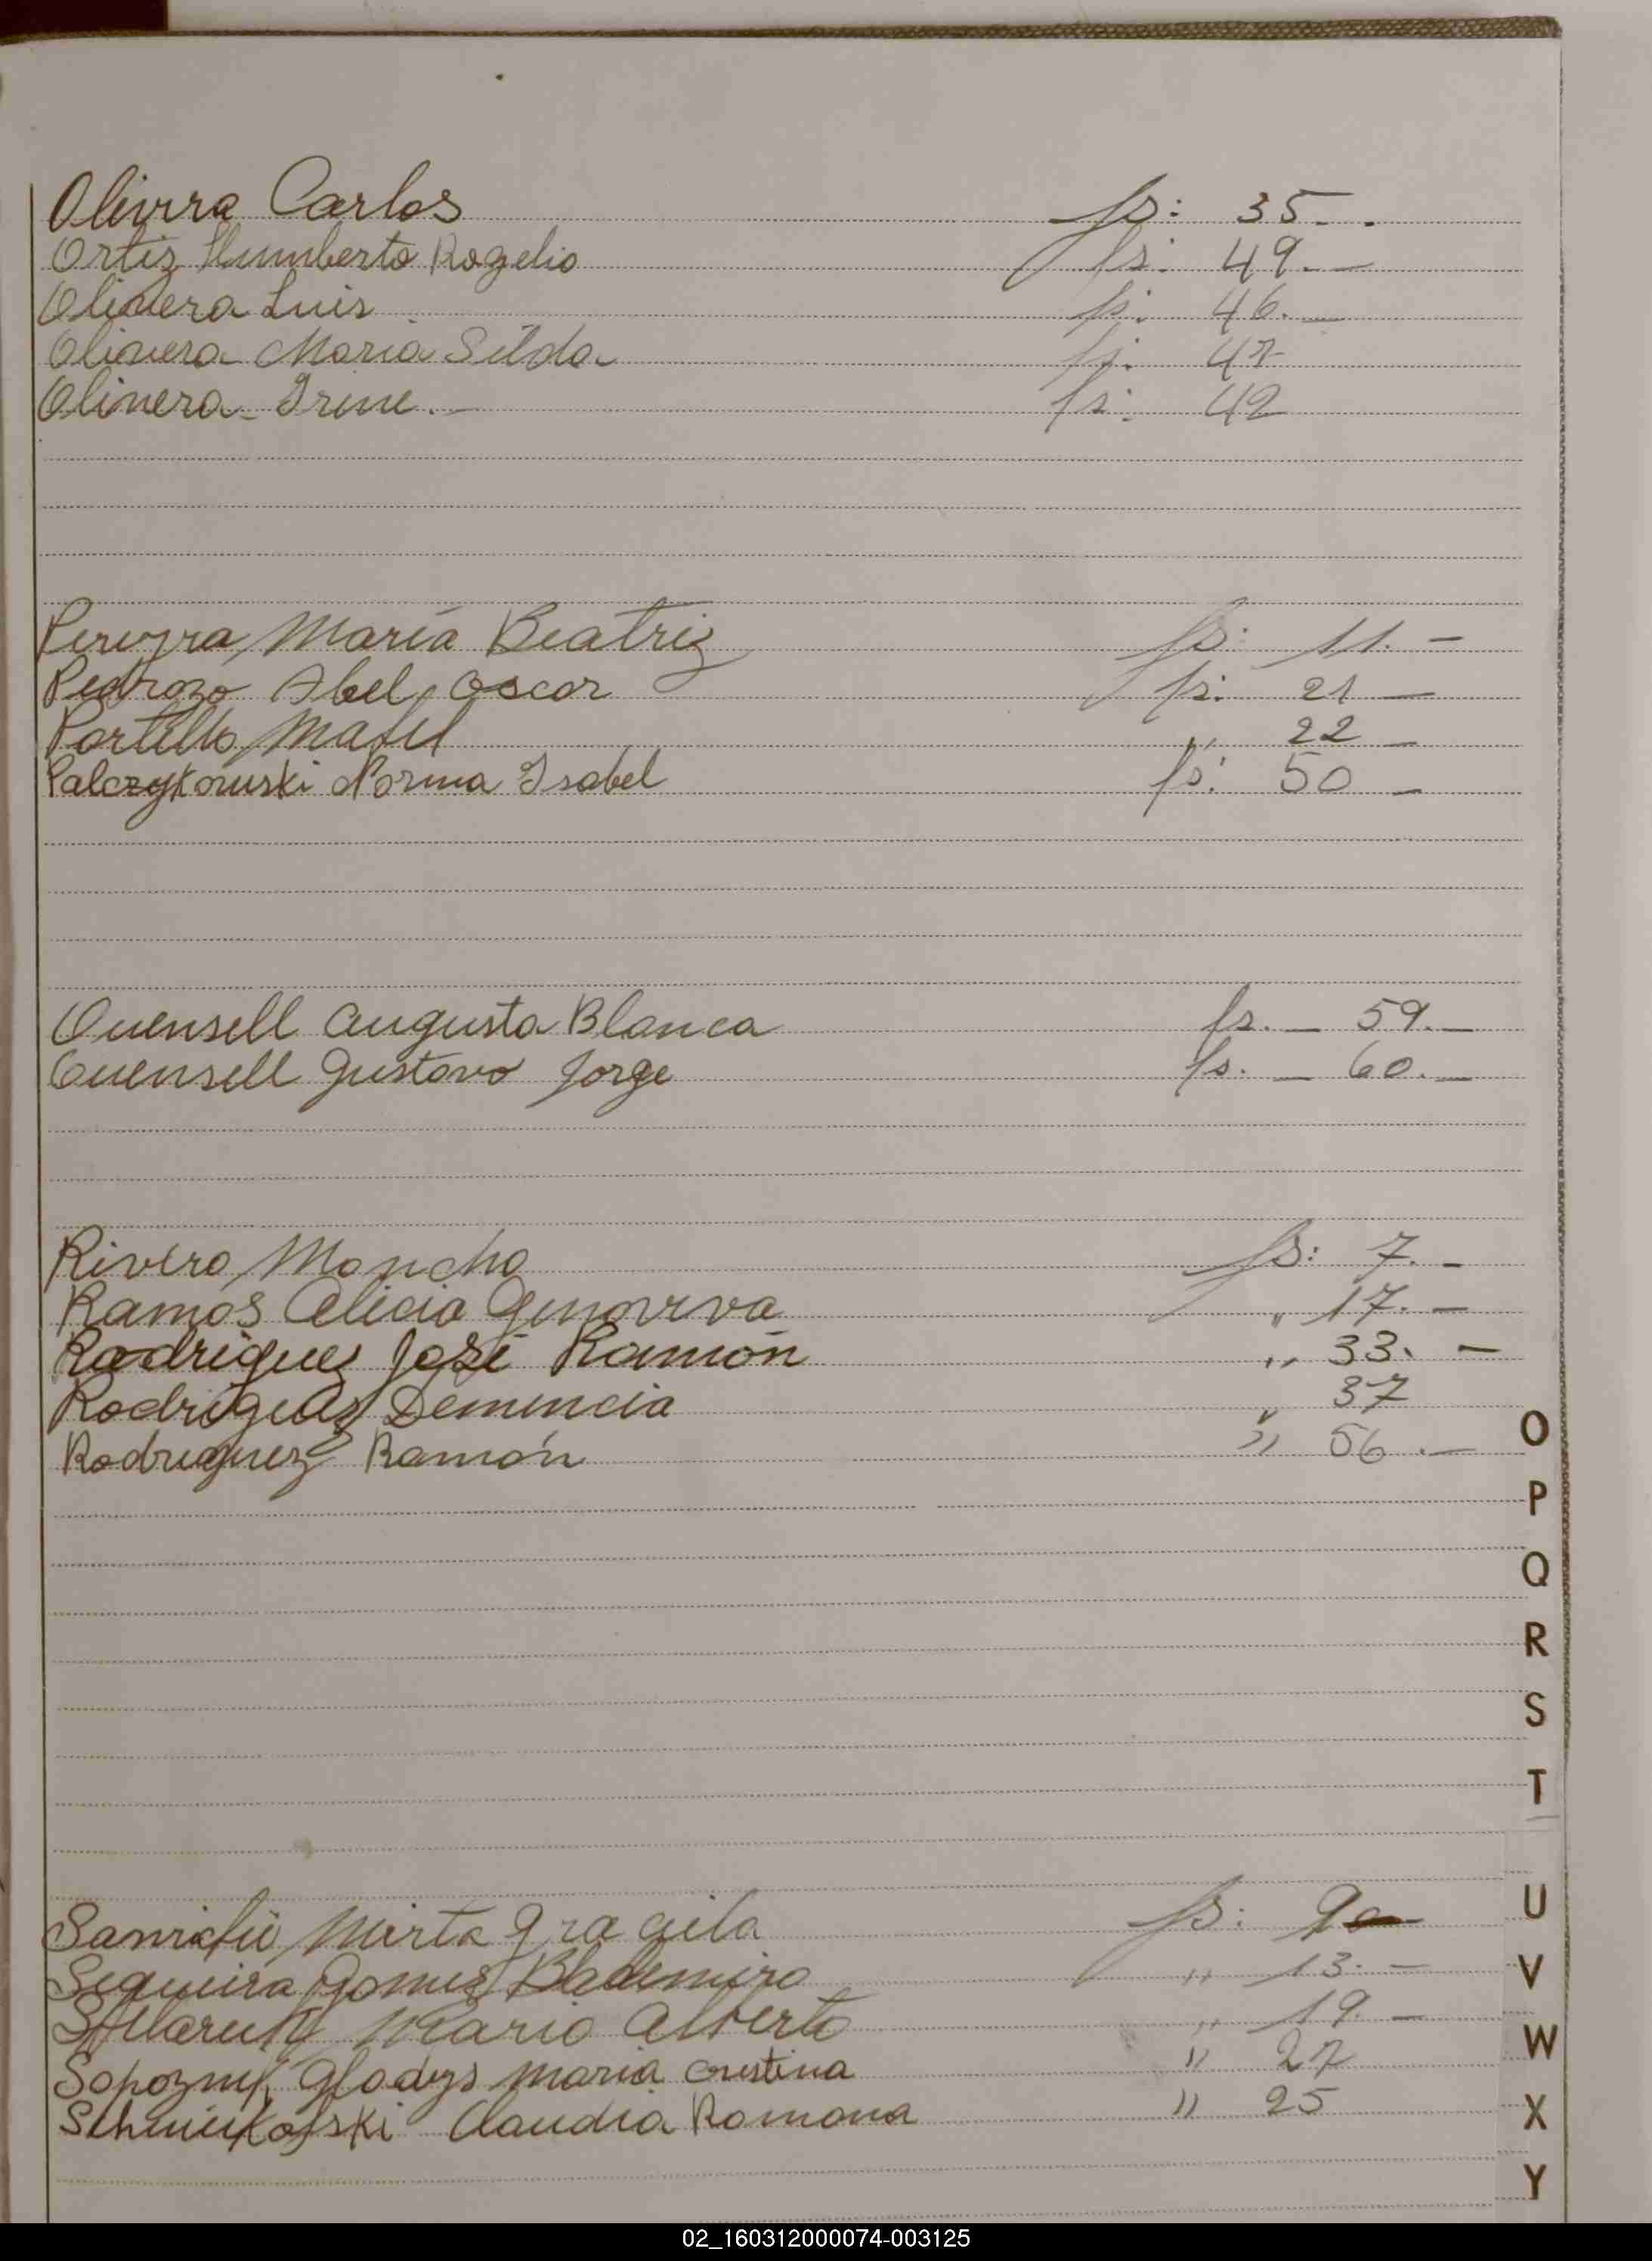 Olivera Carlos fs: 35.-.
Ortiz Humberto Rogelio fs: 49.-
Olivera Luis fs: 46.-
Olivera Maria Silda fs: 47-
Olivera Irene.- fs: 42
Pereyra, María Beatriz fs: 11.-
Pedrozo Abel, Oscar fs: 21 -
Portillo, „ 22 -
Palczykowski Norma Isabel fs: 50 -
Quensell Augusta Blanca fs. - 59.-
Quensell Gustavo Jorge fs. - 60.-
Rivero, Moncho fs: 7.-
Ramos Alicia Genoveva „ 17.-
Rodriguez José Ramón „ 33. -
Rodriguez, Demencia „ 37
Rodriguez Ramón „ 56.-
O
P
Q
R
S
T
Mirta Graciela fs: 9
Sequeira Gomez, Blademiro „ 13.-
Mario Alberto „ 19.-
Gladys Maria Cristina „ 27
Claudia Romana „ 25
U
V
W
X
Y
02_160312000074-003125